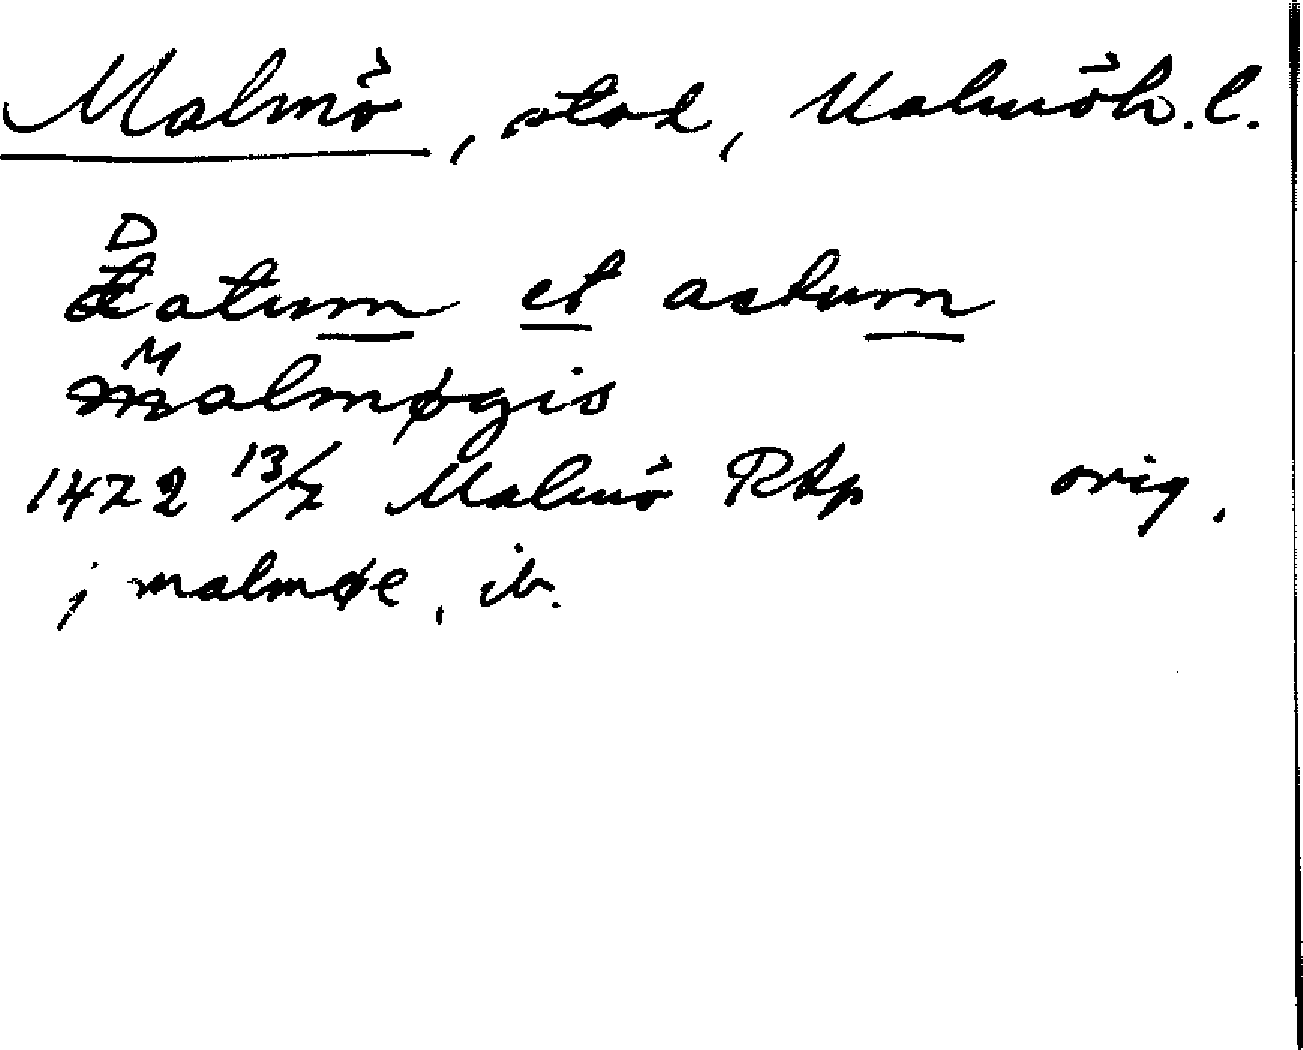 Malmö, stad, Malmöh. l.
Datum et actum
Malmøgis
1472 13/7 Malmö RAp orig.
j malmøe, ib.